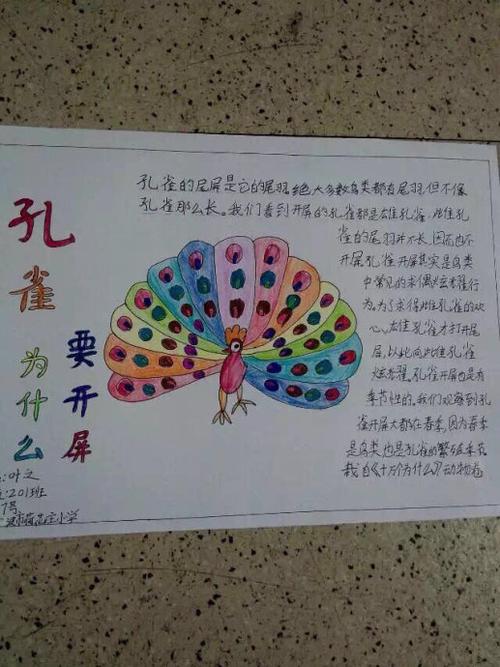 孔雀
为什么
要开屏
孔雀的尾屏是它的尾羽,绝大多数鸟类都有尾羽但不像
孔雀那么长。我们看到开屏的孔雀都是雄孔雀,雌孔
雀的尾羽并不长,因而也不
开屏孔雀开屏其实是鸟类
中常见的求偶炫耀行
为。为了求得雌孔雀的欢
心,雄孔雀才打开尾
屏,以此向雌孔雀
炫耀。孔雀开屏也是有
季节性的。我们观察到孔
雀开屏大都在春季,因为春季
是鸟类也是孔雀的繁殖季节
栽自《十万个为什么》动物卷
:叶之
:201班
7号
小学